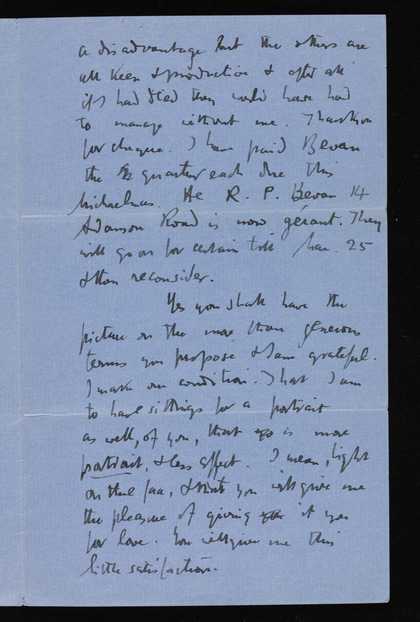 a disadvantage but the others are
all keen & productive & after all
if I had died they would have had
to manage without me. Thank you
for cheque. I have paid Bevan
the quarter each due this
Michaelmas. He R. P. Bevan 14
Adamson Road is now gérant. They
will go on for certain till Mar. 25
& then reconsider.
Yes you shall have the
picture on the more than generous
terms you propose & I am grateful.
I make one condition. That I am
to have sittings for a portrait
as well, of you, that is more
portrait, & less effect. I mean, light
on the face, & that you will give me
the pleasure of giving it you
for love. You will give me this
little satisfaction.